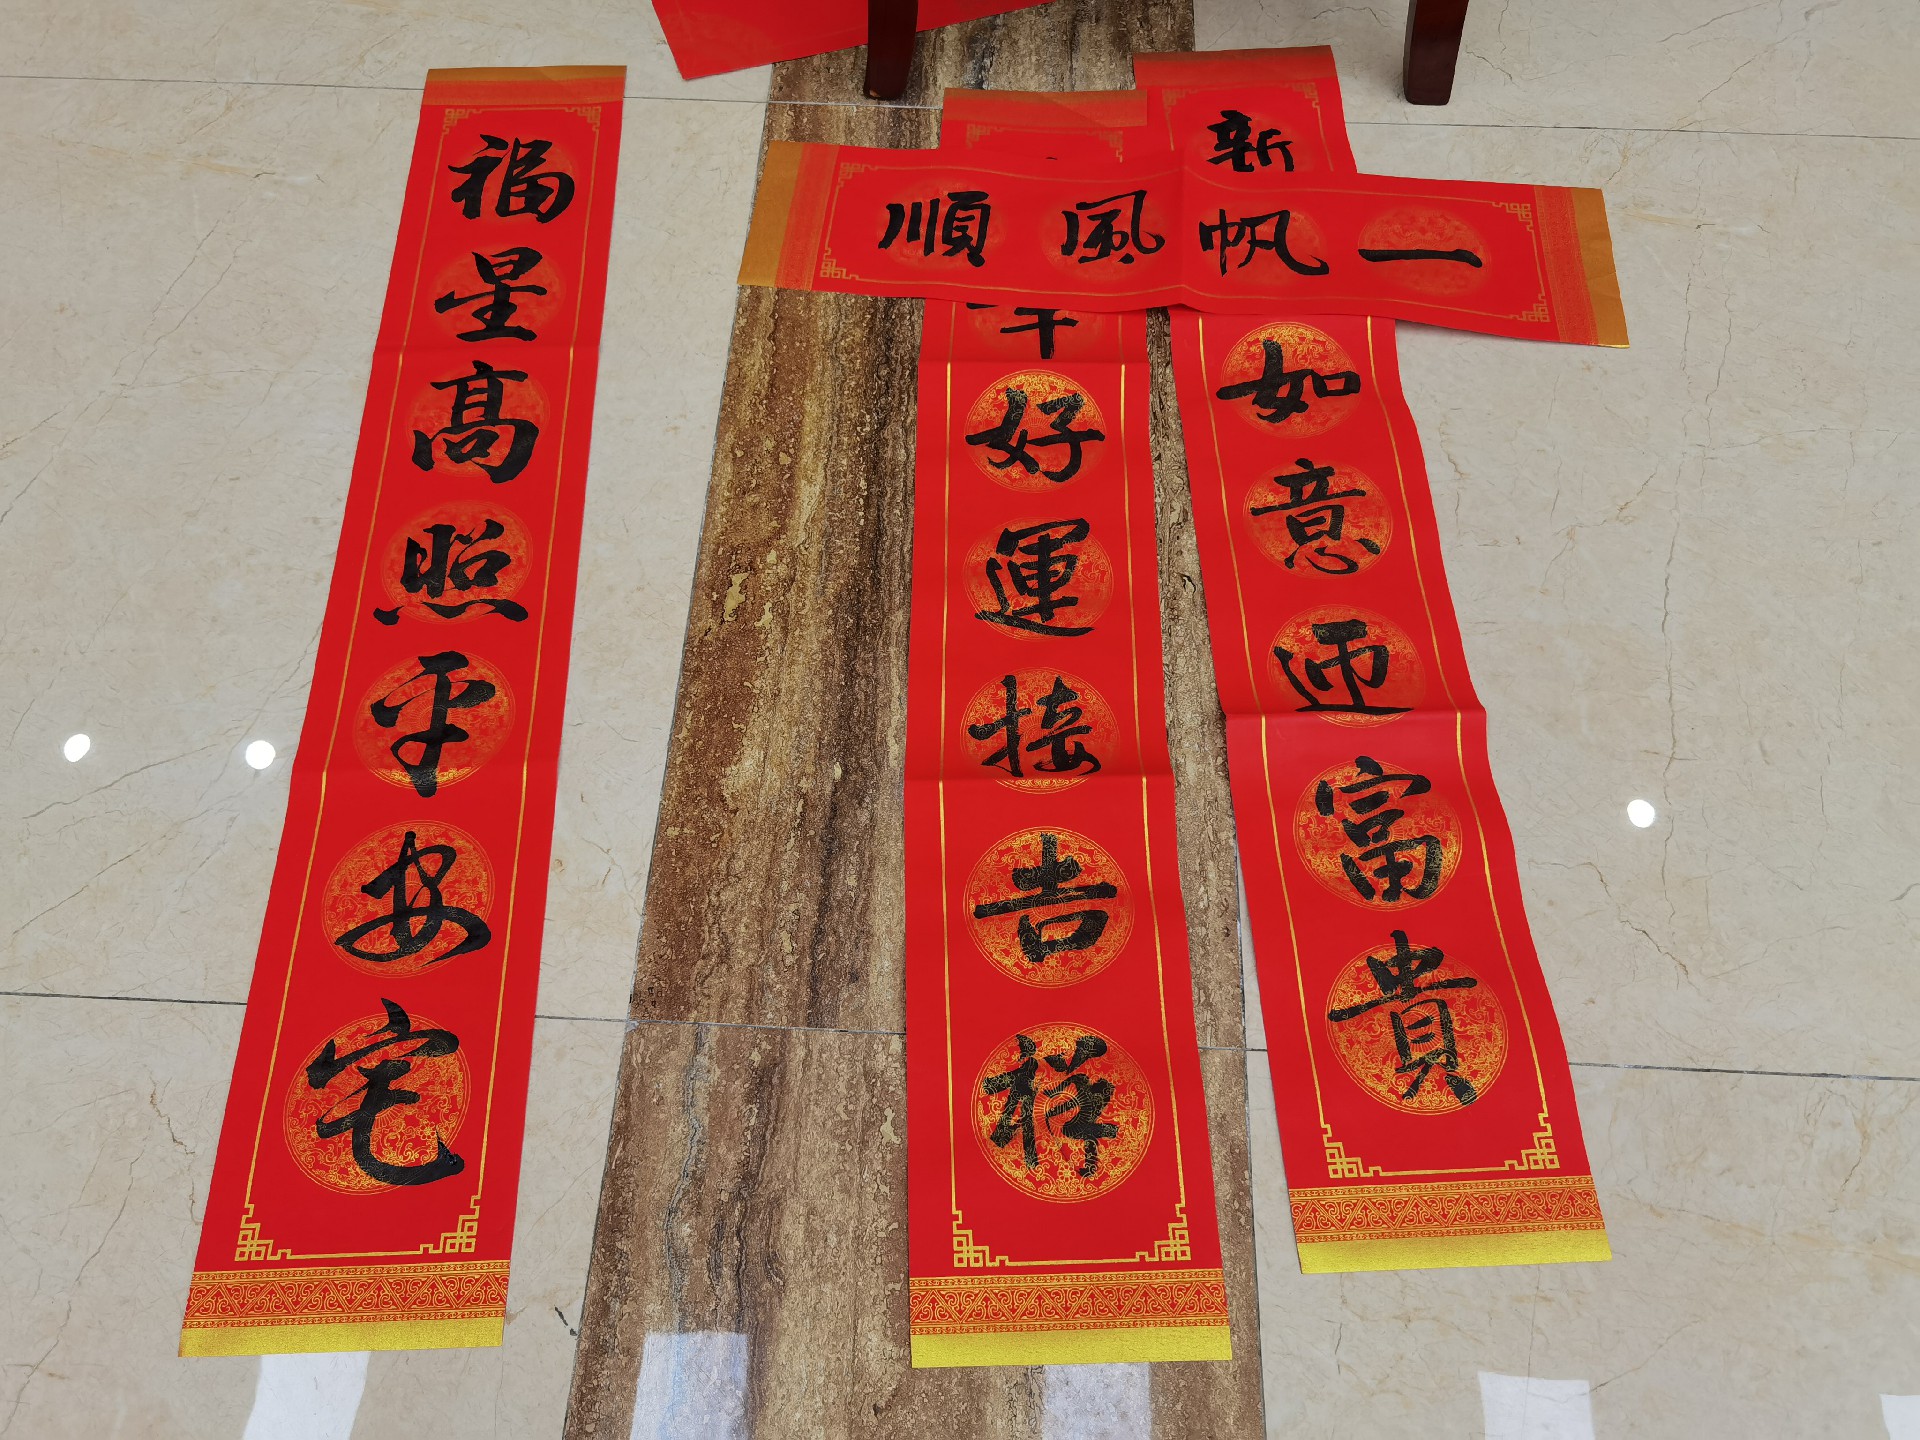 一帆風順
新
如意迎富貴
好運接吉祥
福星高照平安宅